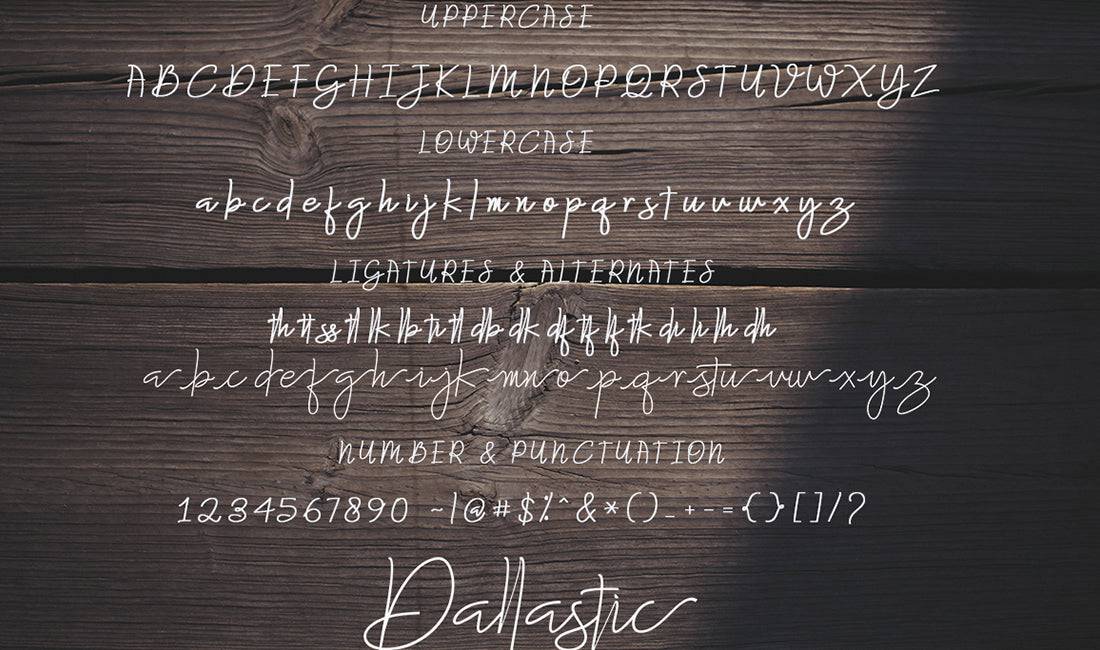 UPPERCASE
ABCDEFGHIJKLMNOPQRSTUVWXYZ
LOWERCASE
abcdefghijklmnopqrstuvwxyz
LIGATURES & ALTERNATES
th tt ss tl lk lb ti tl db dk df tf lf tk di li lh dh
abcdefghijklmnopqrstuvwxyz
NUMBER & PUNCTUATION
1234567890 ~|@#$%^&*()_+-={}[]/?
Dallastic